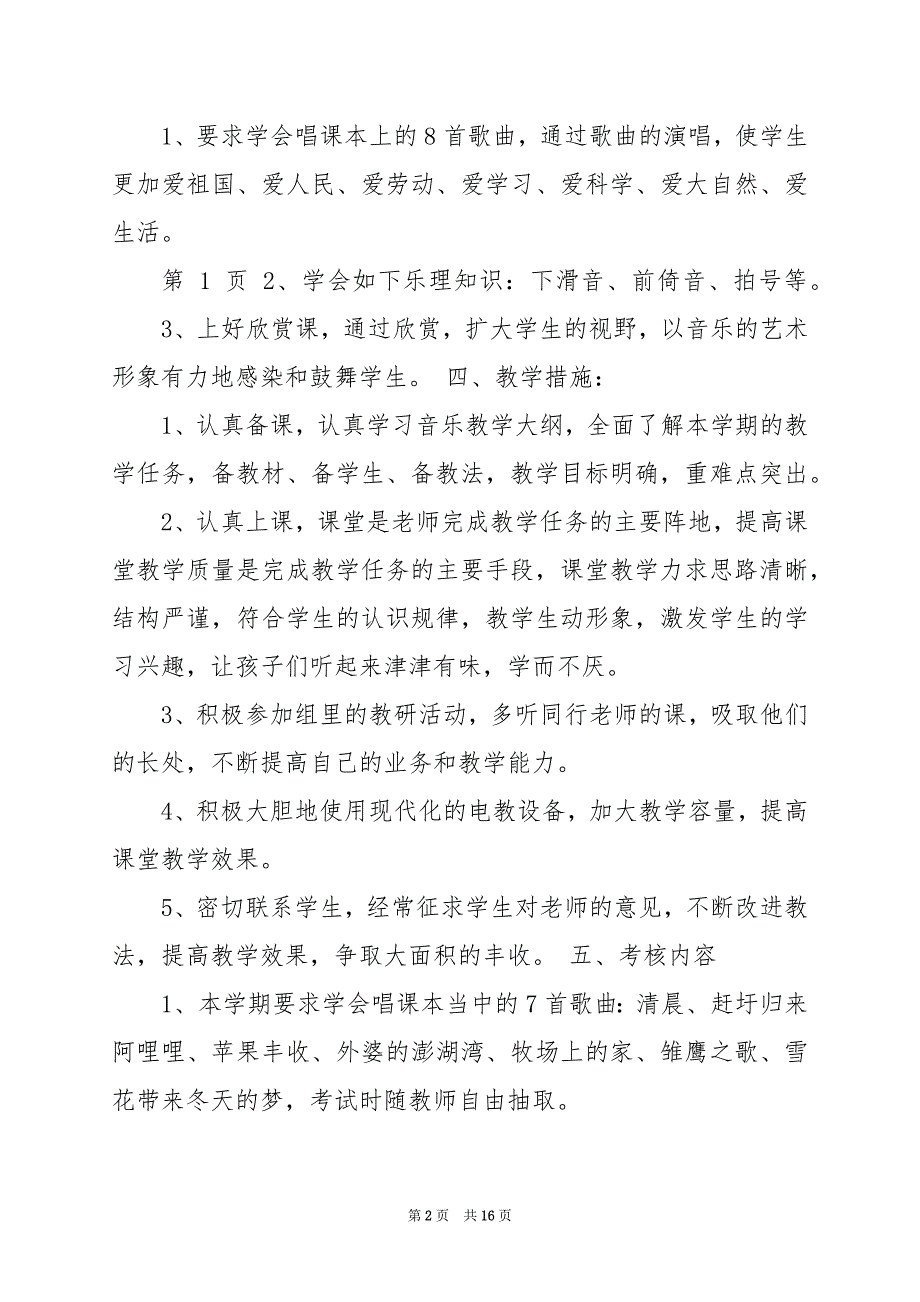 1、要求学会唱课本上的 8 首歌曲，通过歌曲的演唱，使学生
更加爱祖国、爱人民、爱劳动、爱学习、爱科学、爱大自然、爱
生活。
第 1 页 2、学会如下乐理知识：下滑音、前倚音、拍号等。
3、上好欣赏课，通过欣赏，扩大学生的视野，以音乐的艺术
形象有力地感染和鼓舞学生。 四、教学措施：
1、认真备课，认真学习音乐教学大纲，全面了解本学期的教
学任务，备教材、备学生、备教法，教学目标明确，重难点突出。
2、认真上课，课堂是老师完成教学任务的主要阵地，提高课
堂教学质量是完成教学任务的主要手段，课堂教学力求思路清晰，
结构严谨，符合学生的认识规律，教学生动形象，激发学生的学
习兴趣，让孩子们听起来津津有味，学而不厌。
3、积极参加组里的教研活动，多听同行老师的课，吸取他们
的长处，不断提高自己的业务和教学能力。
4、积极大胆地使用现代化的电教设备，加大教学容量，提高
课堂教学效果。
5、密切联系学生，经常征求学生对老师的意见，不断改进教
法，提高教学效果，争取大面积的丰收。 五、考核内容
1、本学期要求学会唱课本当中的 7 首歌曲：清晨、赶圩归来
阿哩哩、苹果丰收、外婆的澎湖湾、牧场上的家、雏鹰之歌、雪
花带来冬天的梦，考试时随教师自由抽取。
第 2 页 共 16 页